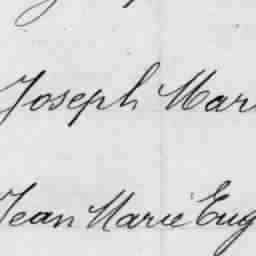 Joseph Mar
Jean Marie Eug